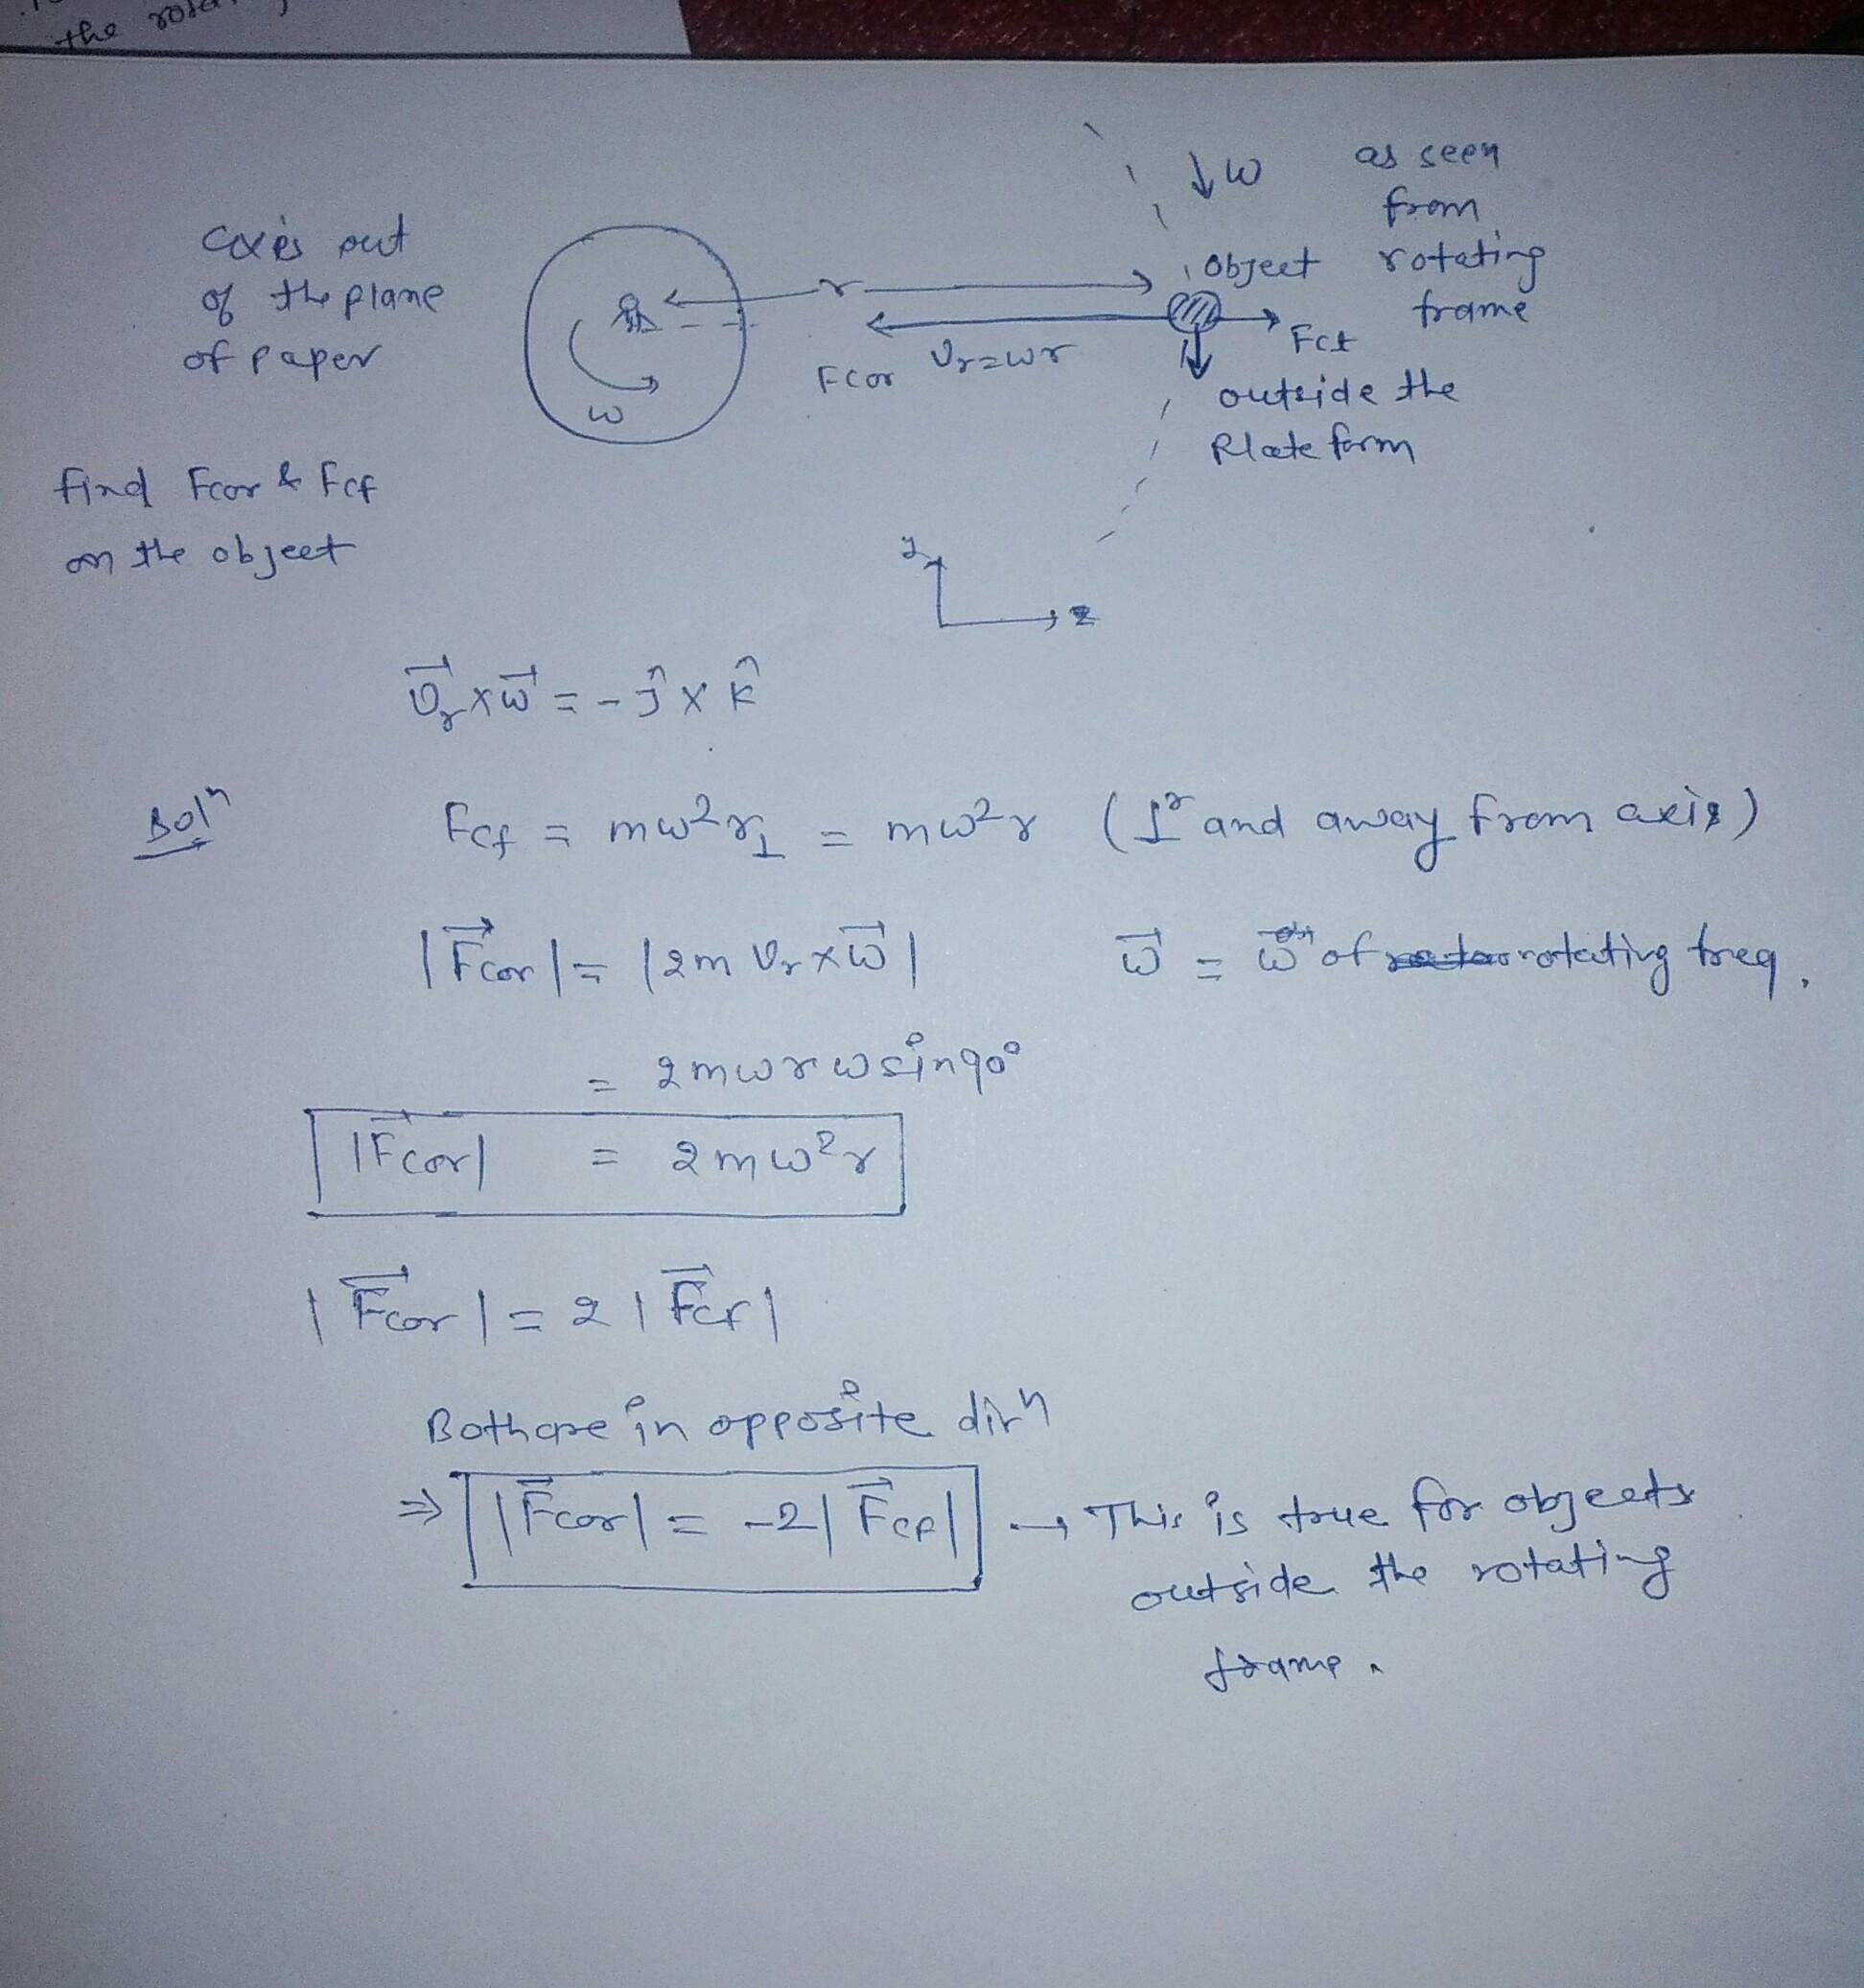 the
axis out
of the plane
of paper
ω
r
↓ω
as seen
from
rotating
frame
object
Fcor
vr=ωr
Fcf
outside the
Plateform
find Fcor & Fcf
on the object
y
x
v⃗r × ω⃗ = - ĵ × k̂
Solⁿ
Fcf = mω²r⊥ = mω²r (⊥ʳ and away from axis)
|F⃗cor| = |2m vr × ω⃗| ω⃗ = ω⃗ of rotating freq.
= 2mωrω sin90°
|F⃗cor| = 2mω²r
|F⃗cor| = 2|F⃗cf|
Both are in opposite dirⁿ
⇒ |F⃗cor| = -2|F⃗cf| → This is true for objects
outside the rotating
frame.